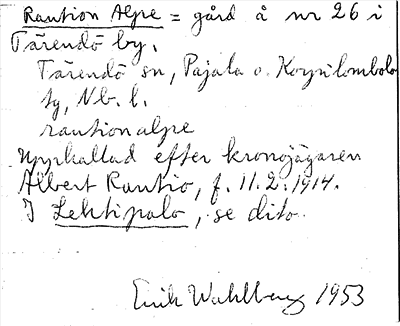 Raution Alpe = gård å nr 26 i
Tärendö by.
Tärendö sn, Pajala o. Korpilombolo
tg, Nb. l.
rautionalpe
Uppkallad efter kronojägaren
Albert Rautio, f. 11.2.1914.
I Lehtipalo, se dito.
Erik Wahlberg 1953